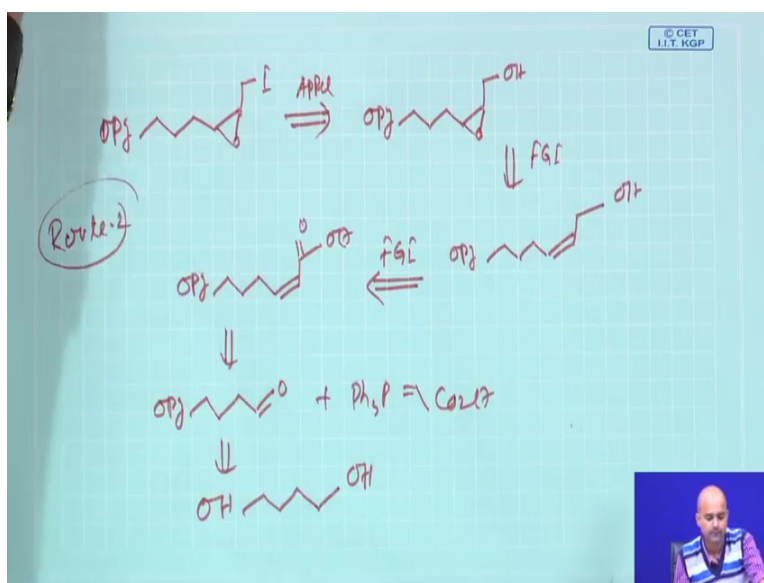 © CET
I.I.T. KGP
I
Appel
OH
OPg
OPg
FGI
Route-2
OH
O
OEt
FGI
OPg
OPg
OPg
O
+ Ph3P = CO2Et
OH
OH